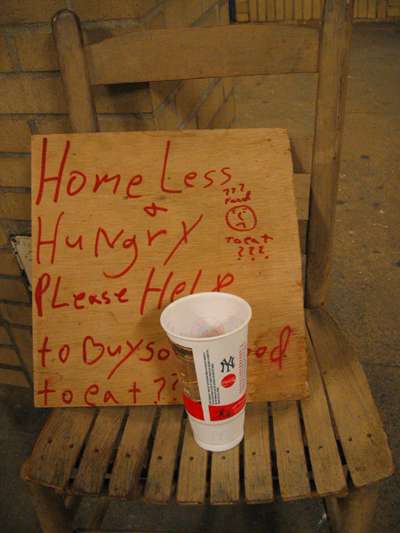 HomeLess
&
Hungry
PLease HeLp
to Buy so od
to eat??
???
Food
to eat
???